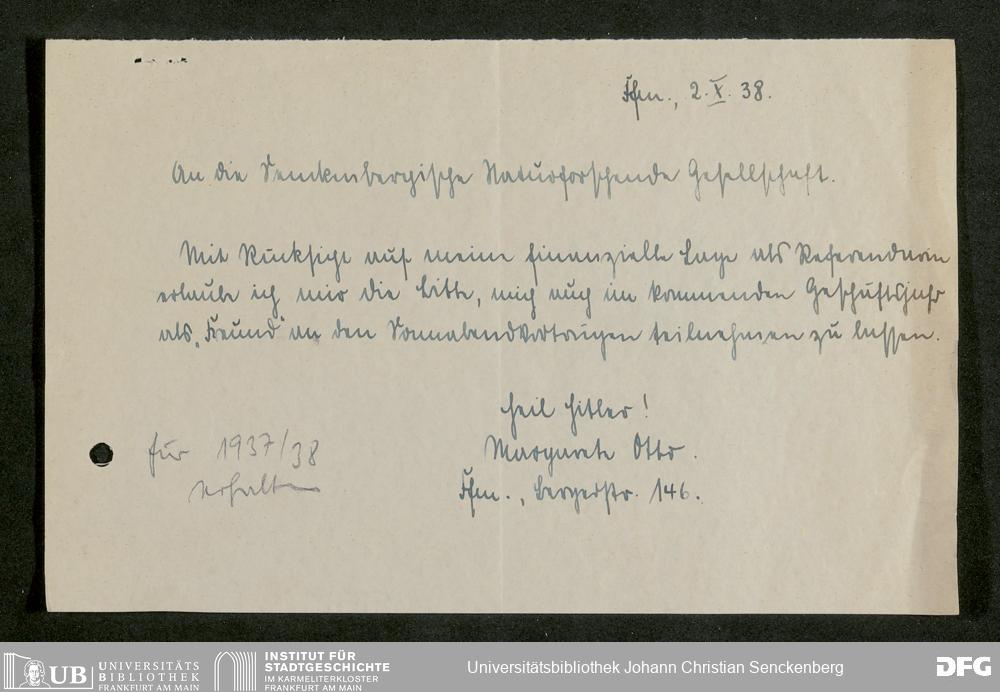 Ffm., 2. X. 38.
An die Senckenbergische Naturforschende Gesellschaft.
Mit Rücksicht auf meine finanzielle Lage als Referendarin
erlaube ich mir die Bitte, mich auch im kommenden Geschäftsjahr
als „Freund“ an den Sonnabendvorträgen teilnehmen zu lassen.
Heil Hitler!
Margarete Otto.
Ffm., Bergerstr. 146.
für 1937/38
erhalten
UB UNIVERSITÄTS
BIBLIOTHEK
FRANKFURT AM MAIN
INSTITUT FÜR
STADTGESCHICHTE
IM KARMELITERKLOSTER
FRANKFURT AM MAIN
Universitätsbibliothek Johann Christian Senckenberg
DFG